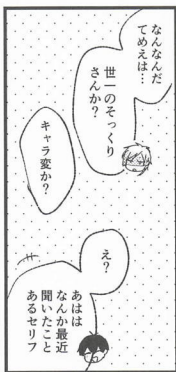 なんなんだ
てめえは…
世一のそっくり
さんか？
キャラ変か？
え？
あはは
なんか最近
聞いたこと
あるセリフ